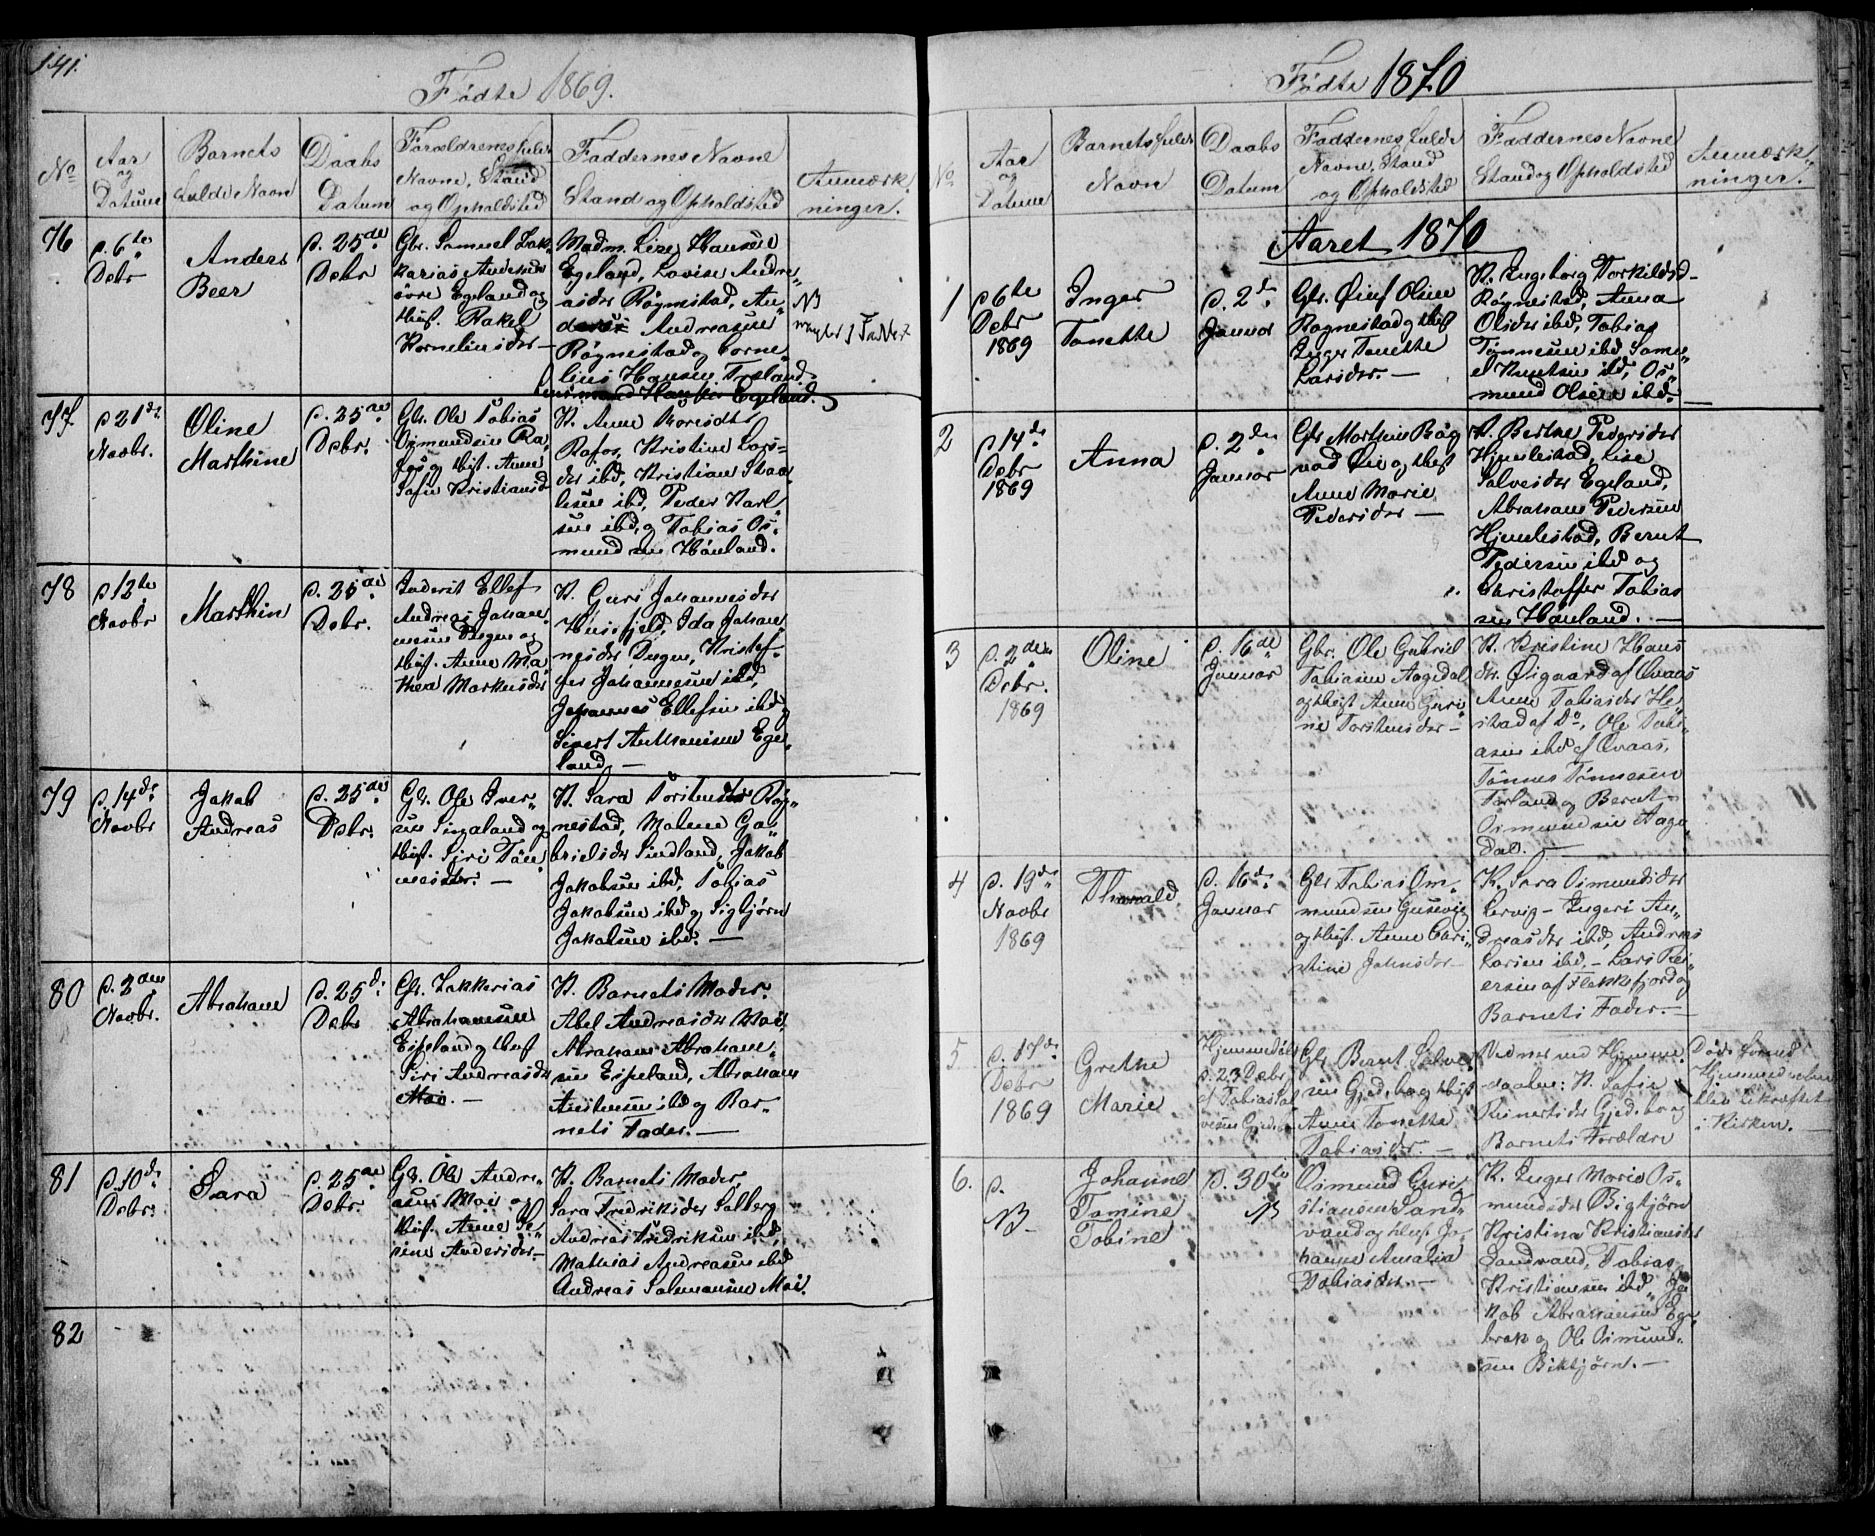 141.
Födte 1869.
No
Aar
og
Datum
Barnets
fulde Navn
Daabs
Datum
Forældrenes fulde
Navne, Stand
og Opholdsted
Faddernes Navne
Stand og Opholdsted
Anmærk
ninger.
76
d. 6te
Debr
Anders
Beer
d. 25de
Debr
Gbr. Samuel Zak
karias Andersen
övre Egeland og
Hust. Rakel
Korneliusdr
Madm. Lise Hansen
Egeland, Lovise Andre
asdr Rögnestad, An
Andreassen
Rögnestad og Corne
lius Hansen
Egeland.
NB
mangler 1 Fadder
77
d 21de
Novbr.
Oline
Marthine
d. 25de
Debr.
Gbr. Ole Tobias
Osmundsen Ra
fos og Hust. Anne
Sofie Kristiansd
K. Anne
Rafos, Kristine Lars
dr ibd, Kristian
ibd, Peder Karl
sen ibd, og Tobias Os
mundsen Hönland.
78
d 12te
Novbr
Marthin
d. 25de
Debr.
Inderst Ellef
Andreas Johan
nesen Dugen og
Hust. Anne Ma
thea Markusdr
K. Guri Johannesdr
Husefjeld, Ida Johan
nesdr Dugen, Kristof
fer Johannesen ibd,
Johannes Ellefsen ibd og
Sivert Anthonisen Ege
land —
79
d. 14de
Novbr
Jakob
Andreas
d. 25de
Debr.
Gb. Ole Iver
sen Sirgaland og
Hust. Siri Tön
nesdr. —
K. Sara Torstensdr Rög
nestad, Malene Ga
brielsdr Sindland, Jakob
Jakobsen ibd, Tobias
Jakobsen ibd og Sigbjörn
Jakobsen ibd. —
80
d. 2den
Novbr.
Abraham
d. 25de
Debr
Gb. Zakkarias
Abrahamsen
Espeland og Hust
Siri Andreasdr
Moi. —
K. Barnets Moder.
Abel Andreasdr Moi
Abraham Abraham
sen Espeland, Abraham
Austensen ibd og Bar
nets Fader. —
81
d. 10de
Debr.
Sara
d. 25de
Debr.
Gb. Ole Andre
asen Moi og
Hust. Anne Se
rine Andersdr —
K. Barnets Moder,
Sara Fredriksdr Solberg
Andreas Fredriksen ibd,
Mathias Andreasen ibd
Andreas Salomonsen Moi.
82
Födte 1870
No
Aar
og
Datum
Barnets fulde
Navn
Daabs
Datum
Faddernes fulde
Navne, Stand
og Opholdsted
Faddernes Navne
Stand og Opholdsted
Anmærk
ninger.
Aaret 1870
1
d 6te
Debr
1869
Inger
Tonette
d. 2de
Januar
Gbr. Olsen
Rognestad og Hust
Inger Tonette
Larsdr. —
K. Ingeborg Torkildsd
Rögnestad, Anna
Olsdr ibd, Tobias
Tönnesen ibd, Samu
el Knutsen ibd, Os
mund Olsen ibd.
2
d 14de
Debr
1869
Anna
d. 2den
Januar
Gbr Morthen Bög
vad Öie og Hust
Anne Marie
Pedersdr —
K. Berthe Pedersdr
Hjemlestad, Lise
Salvesdr Egeland,
Abraham Pedersen
Hjemlestad, Bernt
Pedersen ibd og
Christoffer Tobias
sen Hönland. —
3
d. 2den
Debr.
1869
Oline
d. 16de
Januar
Gbr. Ole Gabriel
Tobiasen Aagedal
og Hust Anne Guri
ne Torstensdr —
K. Kristine Hans
dr. Öigaard af Qvaas
Anne Tobiasdr He
stad af Do, Ole Tobi
asen ibd af Qvaas,
Tönnes Tönnesen
Törland og Bernt
Osmundsen Aage
dal. —
4
d. 19de
Novbr
1869
Thorvald
d. 16de
Januar
Gbr Tobias Om
mundsen
og Hust. Anne Cari
stine Johnsdr —
K. Sara Osmundsdr
Lervig — Ingeri An
dreasdr ibd, Andreas
Larsen ibd. — Lars Rei
ersen af Flekkefjord og
Barnets Fader. —
5
d. 17de
Debr
1869
Grethe
Marie
Hjemmedöbt
d. 23 Debr
af Tobias Sal
vesen Gjedebo
Gbr Bernt Salve
sen Gjedebo og Hust
Anne Tonette
Tobiasdr. —
Vidner ved Hjemme
daaben: K. Sofie
Reinertsdr Gjedebo og
Barnets Forældre
Död forend
Hjemmedaaben
blev bekræftet
i Kirken. —
6.
d.
NB
Johanne
Tomine
Tobine
d. 30te
NB
Osmund Guri
stiansen Sand
vand og Hust Jo
hanne Amalia
Tobiasdr. —
K. Inger Marie Os
mundsdr Bigtjörn
Kristina Kristiansdr
Sandvand, Tobias
Kristiansen ibd, Ja
kob Abrahamsen Eg
brek og Ole Osmund
sen Biktjörn. —